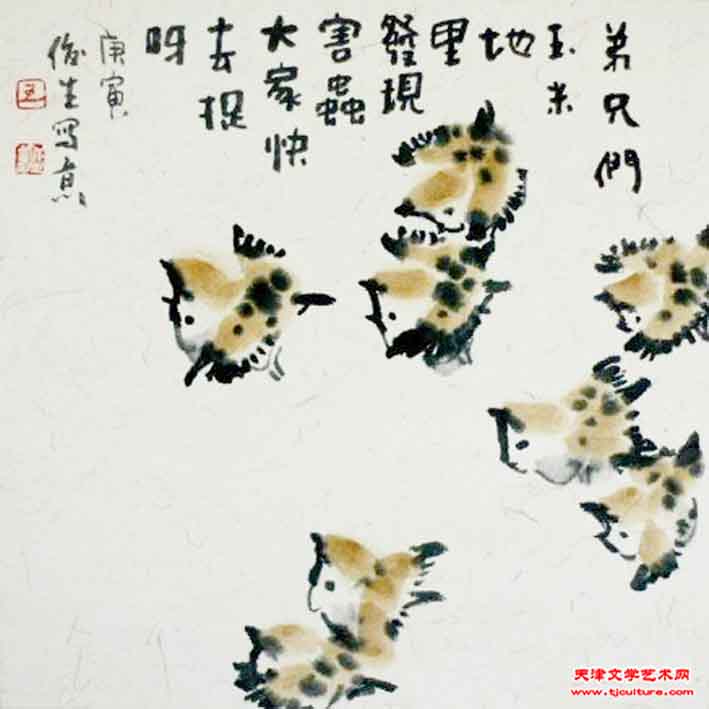 弟兄們
玉米
地
里
發現
害蟲
大家快
去捉
呀
庚寅
俊生寫意
天津文学艺术网
www.tjculture.com